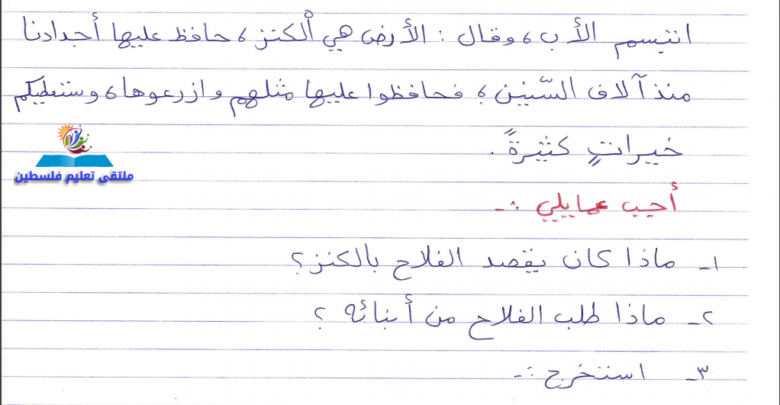 ابتسم الأب، وقال : الأرض هي الكنز، حافظ عليها أجدادنا
منذ آلاف السّنين، فحافظوا عليها مثلهم وازرعوها، وستعطيكم
خيراتٍ كثيرةً.
ملتقى تعليم فلسطين
أجيب عما يلي :-
١- ماذا كان يقصد الفلاح بالكنز؟
٢- ماذا طلب الفلاح من أبنائه ؟
٣- استخرج :-